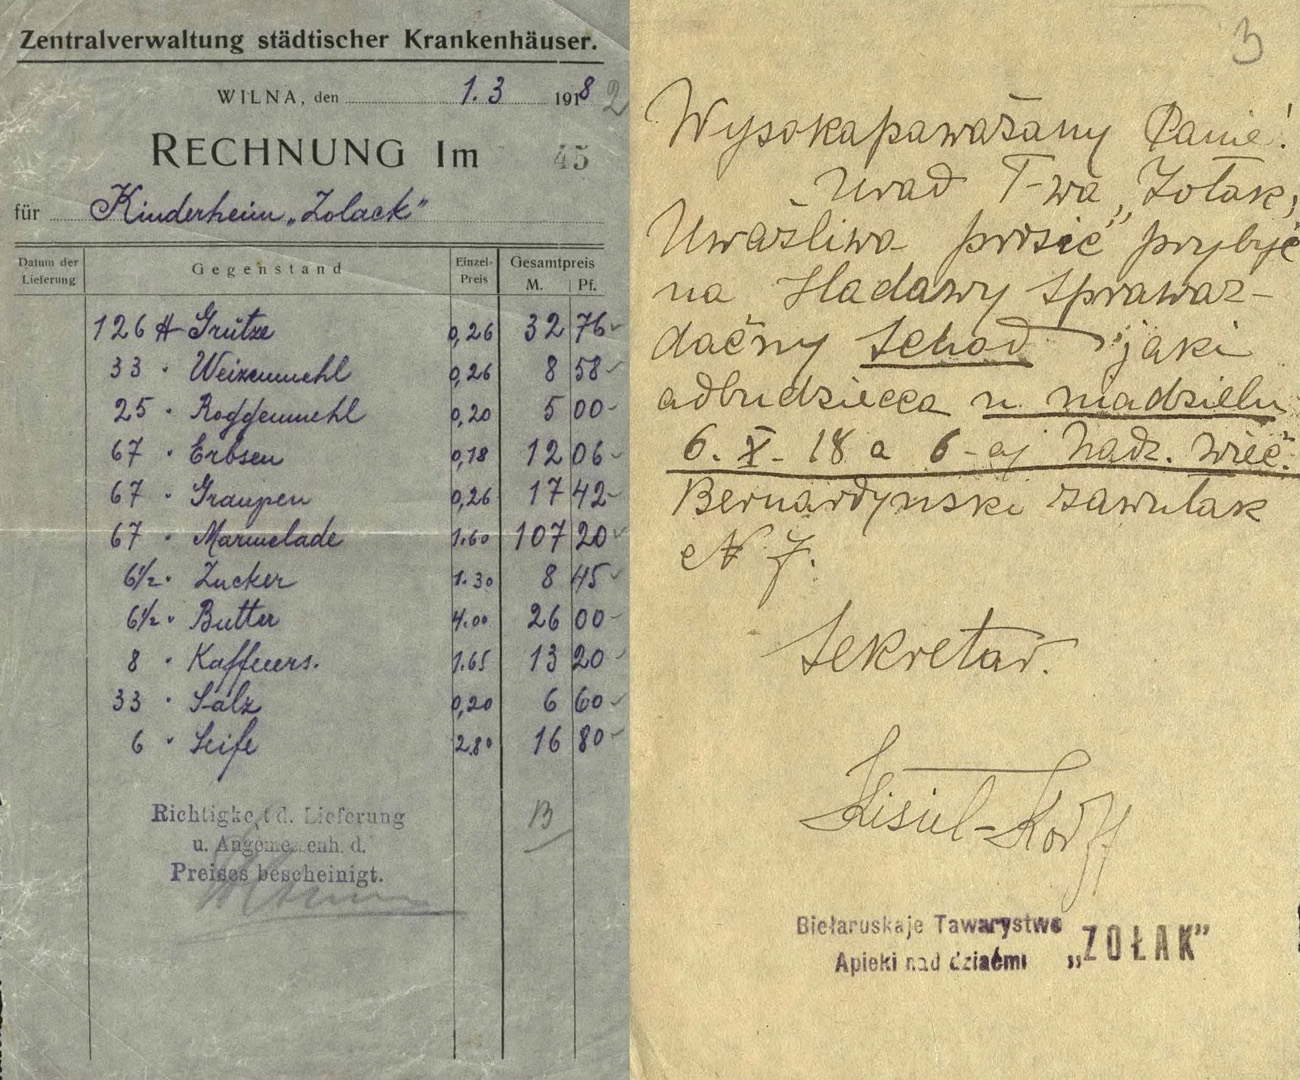 Zentralverwaltung städtischer Krankenhäuser.
WILNA, den 1.3 1918 2
RECHNUNG Im 45
für Kinderheim „Zolack"
Datum der Lieferung Gegenstand Einzel-Preis Gesamtpreis M. Pf.
126 ℔ Grütze 0,26 32 76
33 " Weizenmehl 0,26 8 58
25 " Roggenmehl 0,20 5 00
67 " Erbsen 0,18 12 06
67 " Graupen 0,26 17 42
67 " Marmelade 1.60 107 20
6½ " Zucker 1.30 8 45
6½ " Butter 4.00 26 00
8 " Kaffeeers. 1.65 13 20
33 " Salz 0,20 6 60
6 " Seife 2.80 16 80
Richtigkeit d. Lieferung
u. Angemessenh. d.
Preises bescheinigt.
B
3
Wysokapawažany Panie!
Urad T-wa „Zołak„
Uwažliwa prosić prybyć
na Hadawy sprawaz-
dačny schod jaki
adbudziecca u niadzielu
6. X. 18 a 6-aj hadz. wieč.
Bernardynski zawułak
№ 7.
Sekretar.
Kisiel-Korff
Biełaruskaje Tawarystwo
Apieki nad dziaćmi „ZOŁAK"